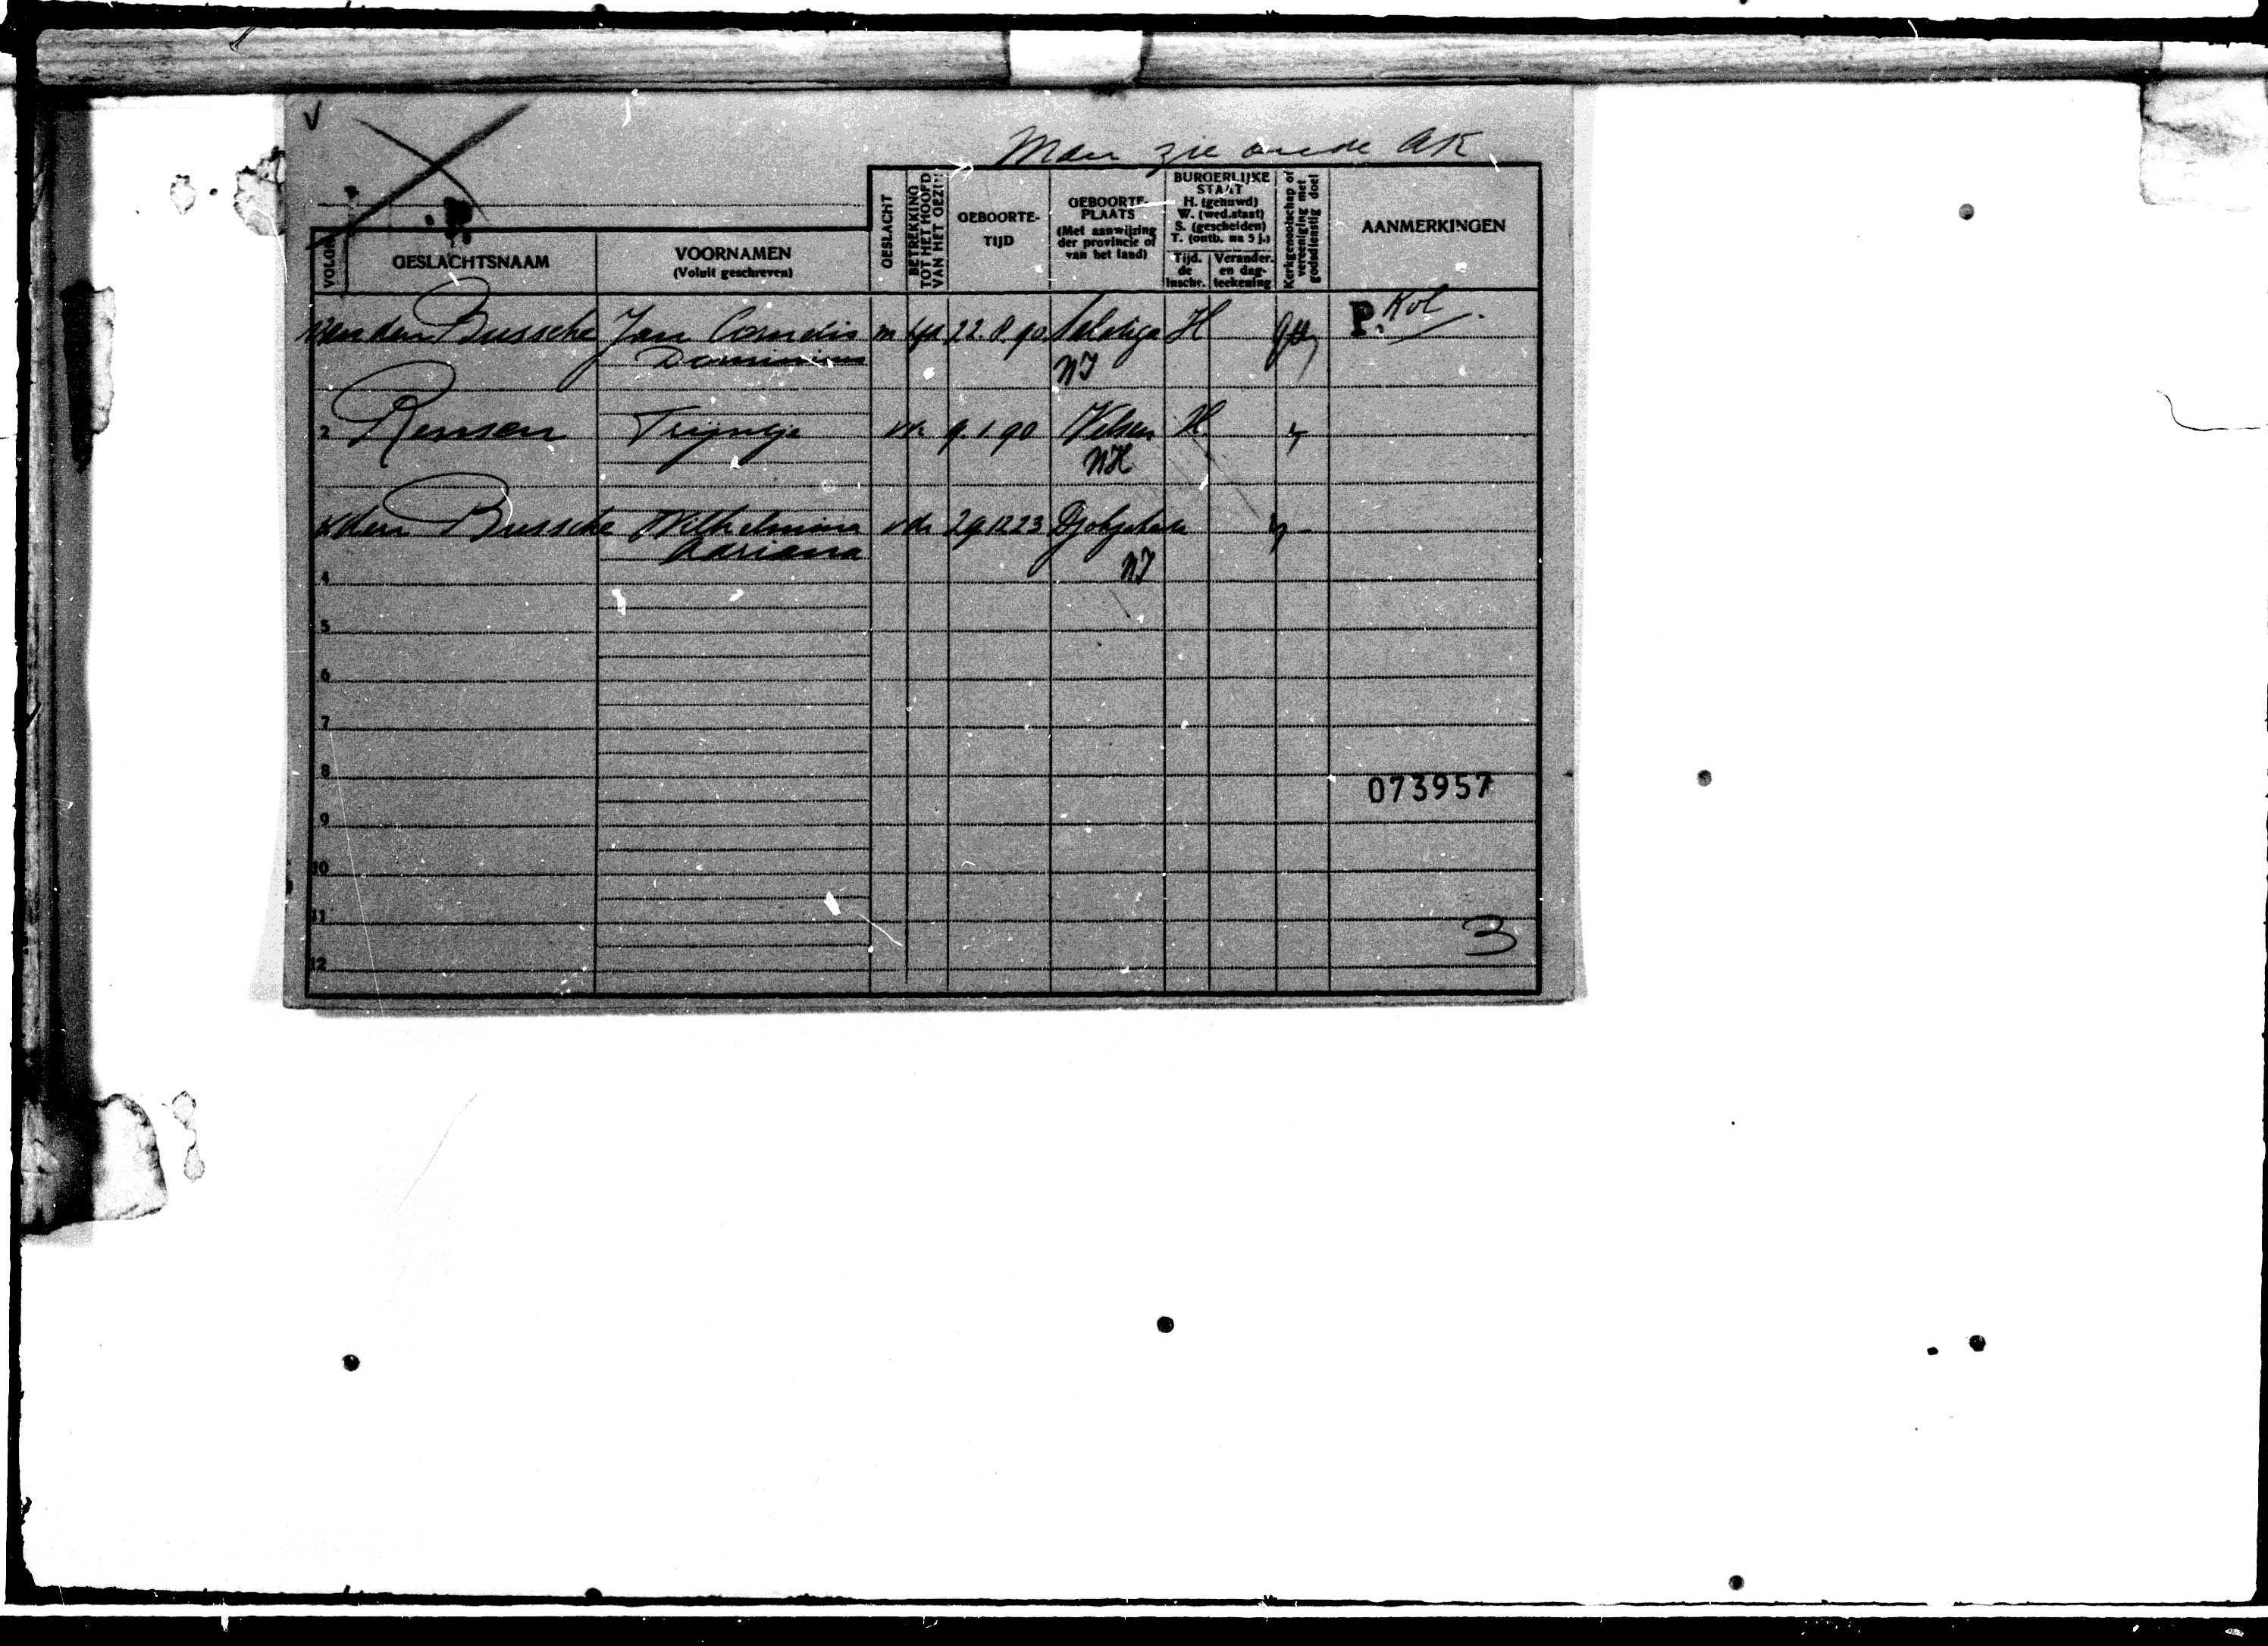 V
Man zie oude AK
VOLGN.
GESLACHTSNAAM
VOORNAMEN
(Voluit geschreven)
GESLACHT
BETREKKING
TOT HET HOOFD
VAN HET GEZIN
GEBOORTE-
TIJD
GEBOORTE-
PLAATS
(Met aanwijzing
der provincie of
van het land)
BURGERLIJKE
STAAT
H. (gehuwd)
W. (wed.staat)
S. (gescheiden)
T. (ontb. na 5 j.)
Tijd.
de
inschr.
Verander.
en dag-
teekening
Kerkgenootschap of
vereeniging met
godsdienstig doel
AANMERKINGEN
van den Bussche Jan Cornelis m hfd 22.8.90 Salatiga H P. Kol
Dominicus NI
2 Rensen Trijntje v 9.1.90 Velsen H
NH
v den Bussche Wilhelmina v dr 29.12.23 Djokjakarta
Adriana NI
4
5
6
7
8
073957
9
10
11
3
12